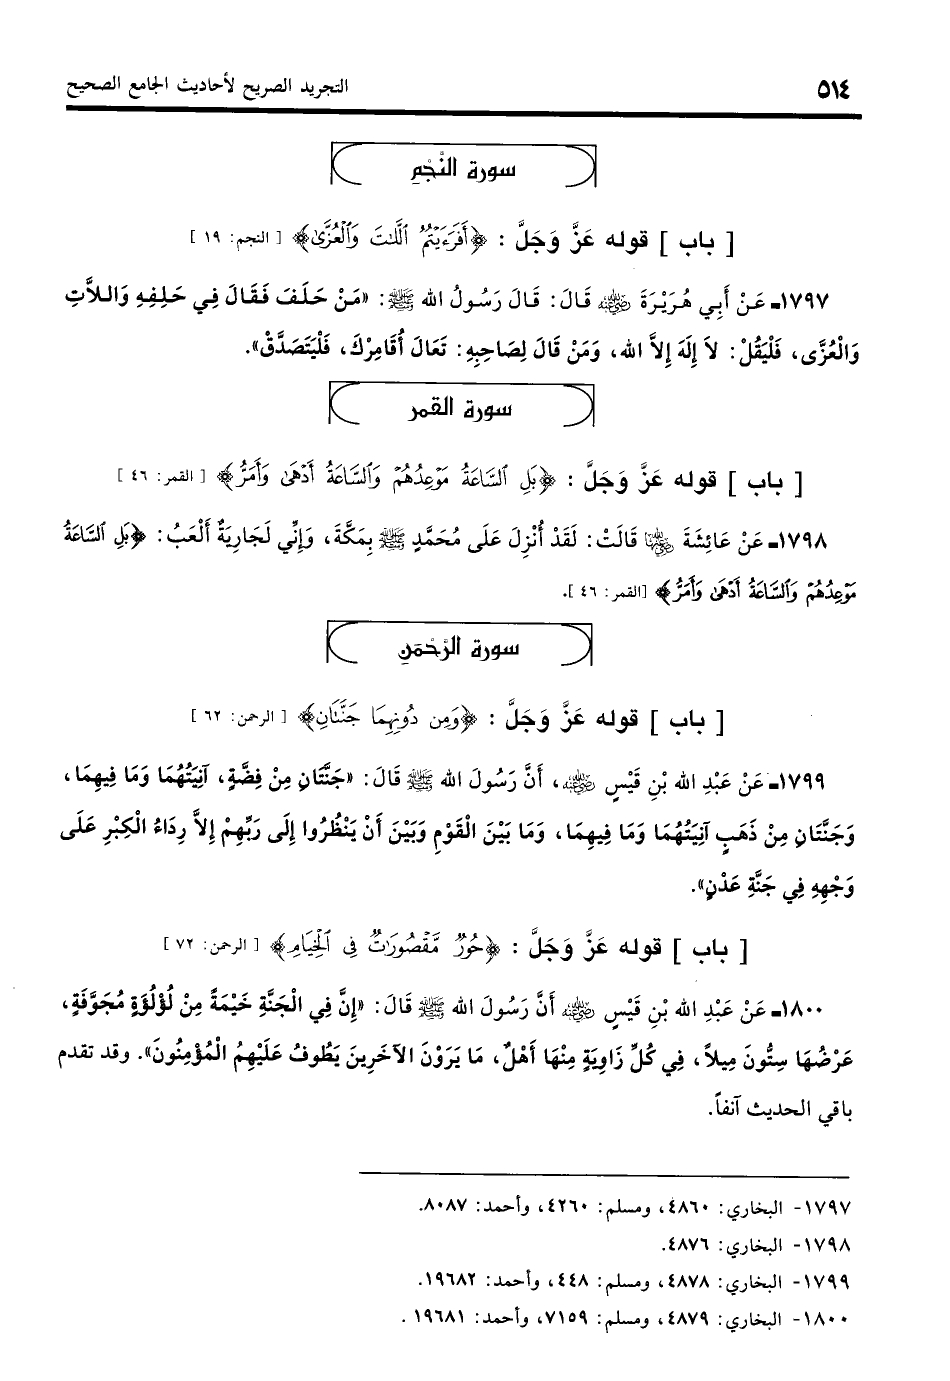 ٥١٤ التجريد الصريح لأحاديث الجامع الصحيح
سورة النَّجْمِ
[ باب ] قوله عَزَّ وَجَلَّ : ﴿أَفَرَءَيْتُمُ ٱللَّٰتَ وَٱلْعُزَّىٰ﴾ [ النجم: ١٩ ]
١٧٩٧ـ عَنْ أَبِي هُرَيْرَةَ رضي الله عنه قَالَ: قَالَ رَسُولُ الله ﷺ: «مَنْ حَلَفَ فَقَالَ فِي حَلِفِهِ وَاللاَّتِ
وَالْعُزَّى، فَلْيَقُلْ: لاَ إِلَهَ إِلاَّ الله، وَمَنْ قَالَ لِصَاحِبِهِ: تَعَالَ أُقَامِرْكَ، فَلْيَتَصَدَّقْ».
سورة القمر
[ باب ] قوله عَزَّ وَجَلَّ : ﴿بَلِ ٱلسَّاعَةُ مَوْعِدُهُمْ وَٱلسَّاعَةُ أَدْهَىٰ وَأَمَرُّ﴾ [ القمر: ٤٦ ]
١٧٩٨ـ عَنْ عَائِشَةَ رضي الله عنها قَالَتْ: لَقَدْ أُنْزِلَ عَلَى مُحَمَّدٍ ﷺ بِمَكَّةَ، وَإِنِّي لَجَارِيَةٌ أَلْعَبُ: ﴿بَلِ ٱلسَّاعَةُ
مَوْعِدُهُمْ وَٱلسَّاعَةُ أَدْهَىٰ وَأَمَرُّ﴾ [القمر: ٤٦ ].
سورة الرَّحْمَنِ
[ باب ] قوله عَزَّ وَجَلَّ : ﴿وَمِن دُونِهِمَا جَنَّتَانِ﴾ [ الرحمن: ٦٢ ]
١٧٩٩ـ عَنْ عَبْدِ الله بْنِ قَيْسٍ رضي الله عنه، أَنَّ رَسُولَ الله ﷺ قَالَ: «جَنَّتَانِ مِنْ فِضَّةٍ، آنِيَتُهُمَا وَمَا فِيهِمَا،
وَجَنَّتَانِ مِنْ ذَهَبٍ آنِيَتُهُمَا وَمَا فِيهِمَا، وَمَا بَيْنَ الْقَوْمِ وَبَيْنَ أَنْ يَنْظُرُوا إِلَى رَبِّهِمْ إِلاَّ رِدَاءُ الْكِبْرِ عَلَى
وَجْهِهِ فِي جَنَّةِ عَدْنٍ».
[ باب ] قوله عَزَّ وَجَلَّ : ﴿حُورٌ مَّقْصُورَاتٌ فِي ٱلْخِيَامِ﴾ [ الرحمن: ٧٢ ]
١٨٠٠ـ عَنْ عَبْدِ الله بْنِ قَيْسٍ رضي الله عنه أَنَّ رَسُولَ الله ﷺ قَالَ: «إِنَّ فِي الْجَنَّةِ خَيْمَةً مِنْ لُؤْلُؤَةٍ مُجَوَّفَةٍ،
عَرْضُهَا سِتُّونَ مِيلاً، فِي كُلِّ زَاوِيَةٍ مِنْهَا أَهْلٌ، مَا يَرَوْنَ الآخَرِينَ يَطُوفُ عَلَيْهِمُ الْمُؤْمِنُونَ». وقد تقدم
باقي الحديث آنفاً.
١٧٩٧- البخاري: ٤٨٦٠، ومسلم: ٤٢٦٠، وأحمد: ٨٠٨٧.
١٧٩٨- البخاري: ٤٨٧٦.
١٧٩٩- البخاري: ٤٨٧٨، ومسلم: ٤٤٨، وأحمد: ١٩٦٨٢.
١٨٠٠- البخاري: ٤٨٧٩، ومسلم: ٧١٥٩، وأحمد: ١٩٦٨١ .